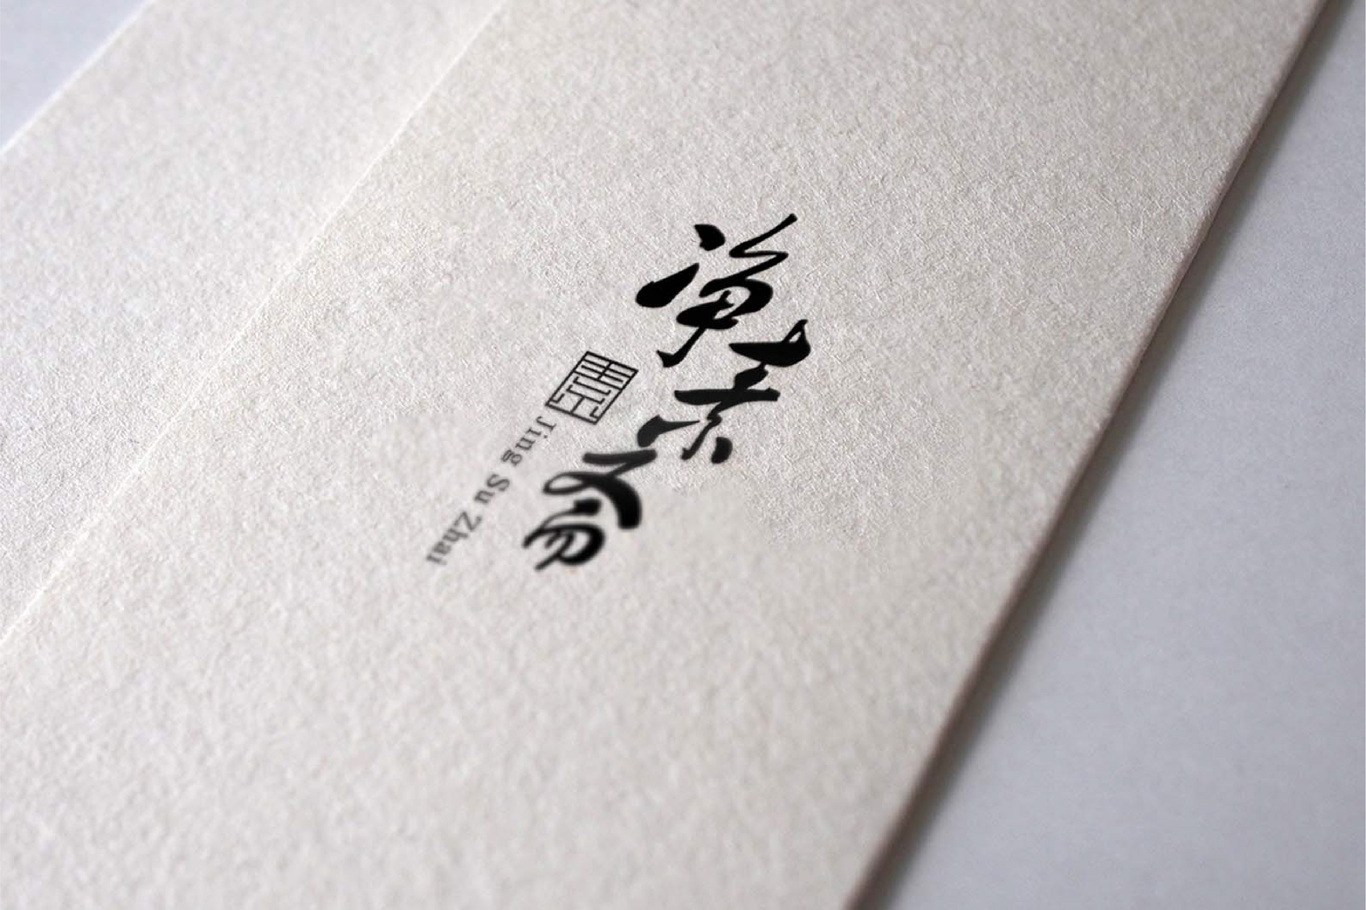 净素斋
Jing Su Zhai